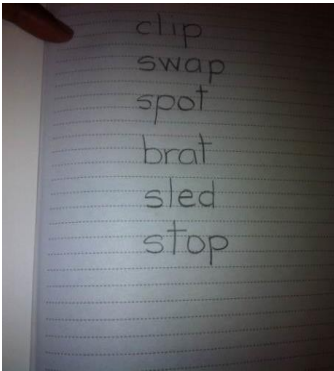 clip
swap
spot
brat
sled
stop